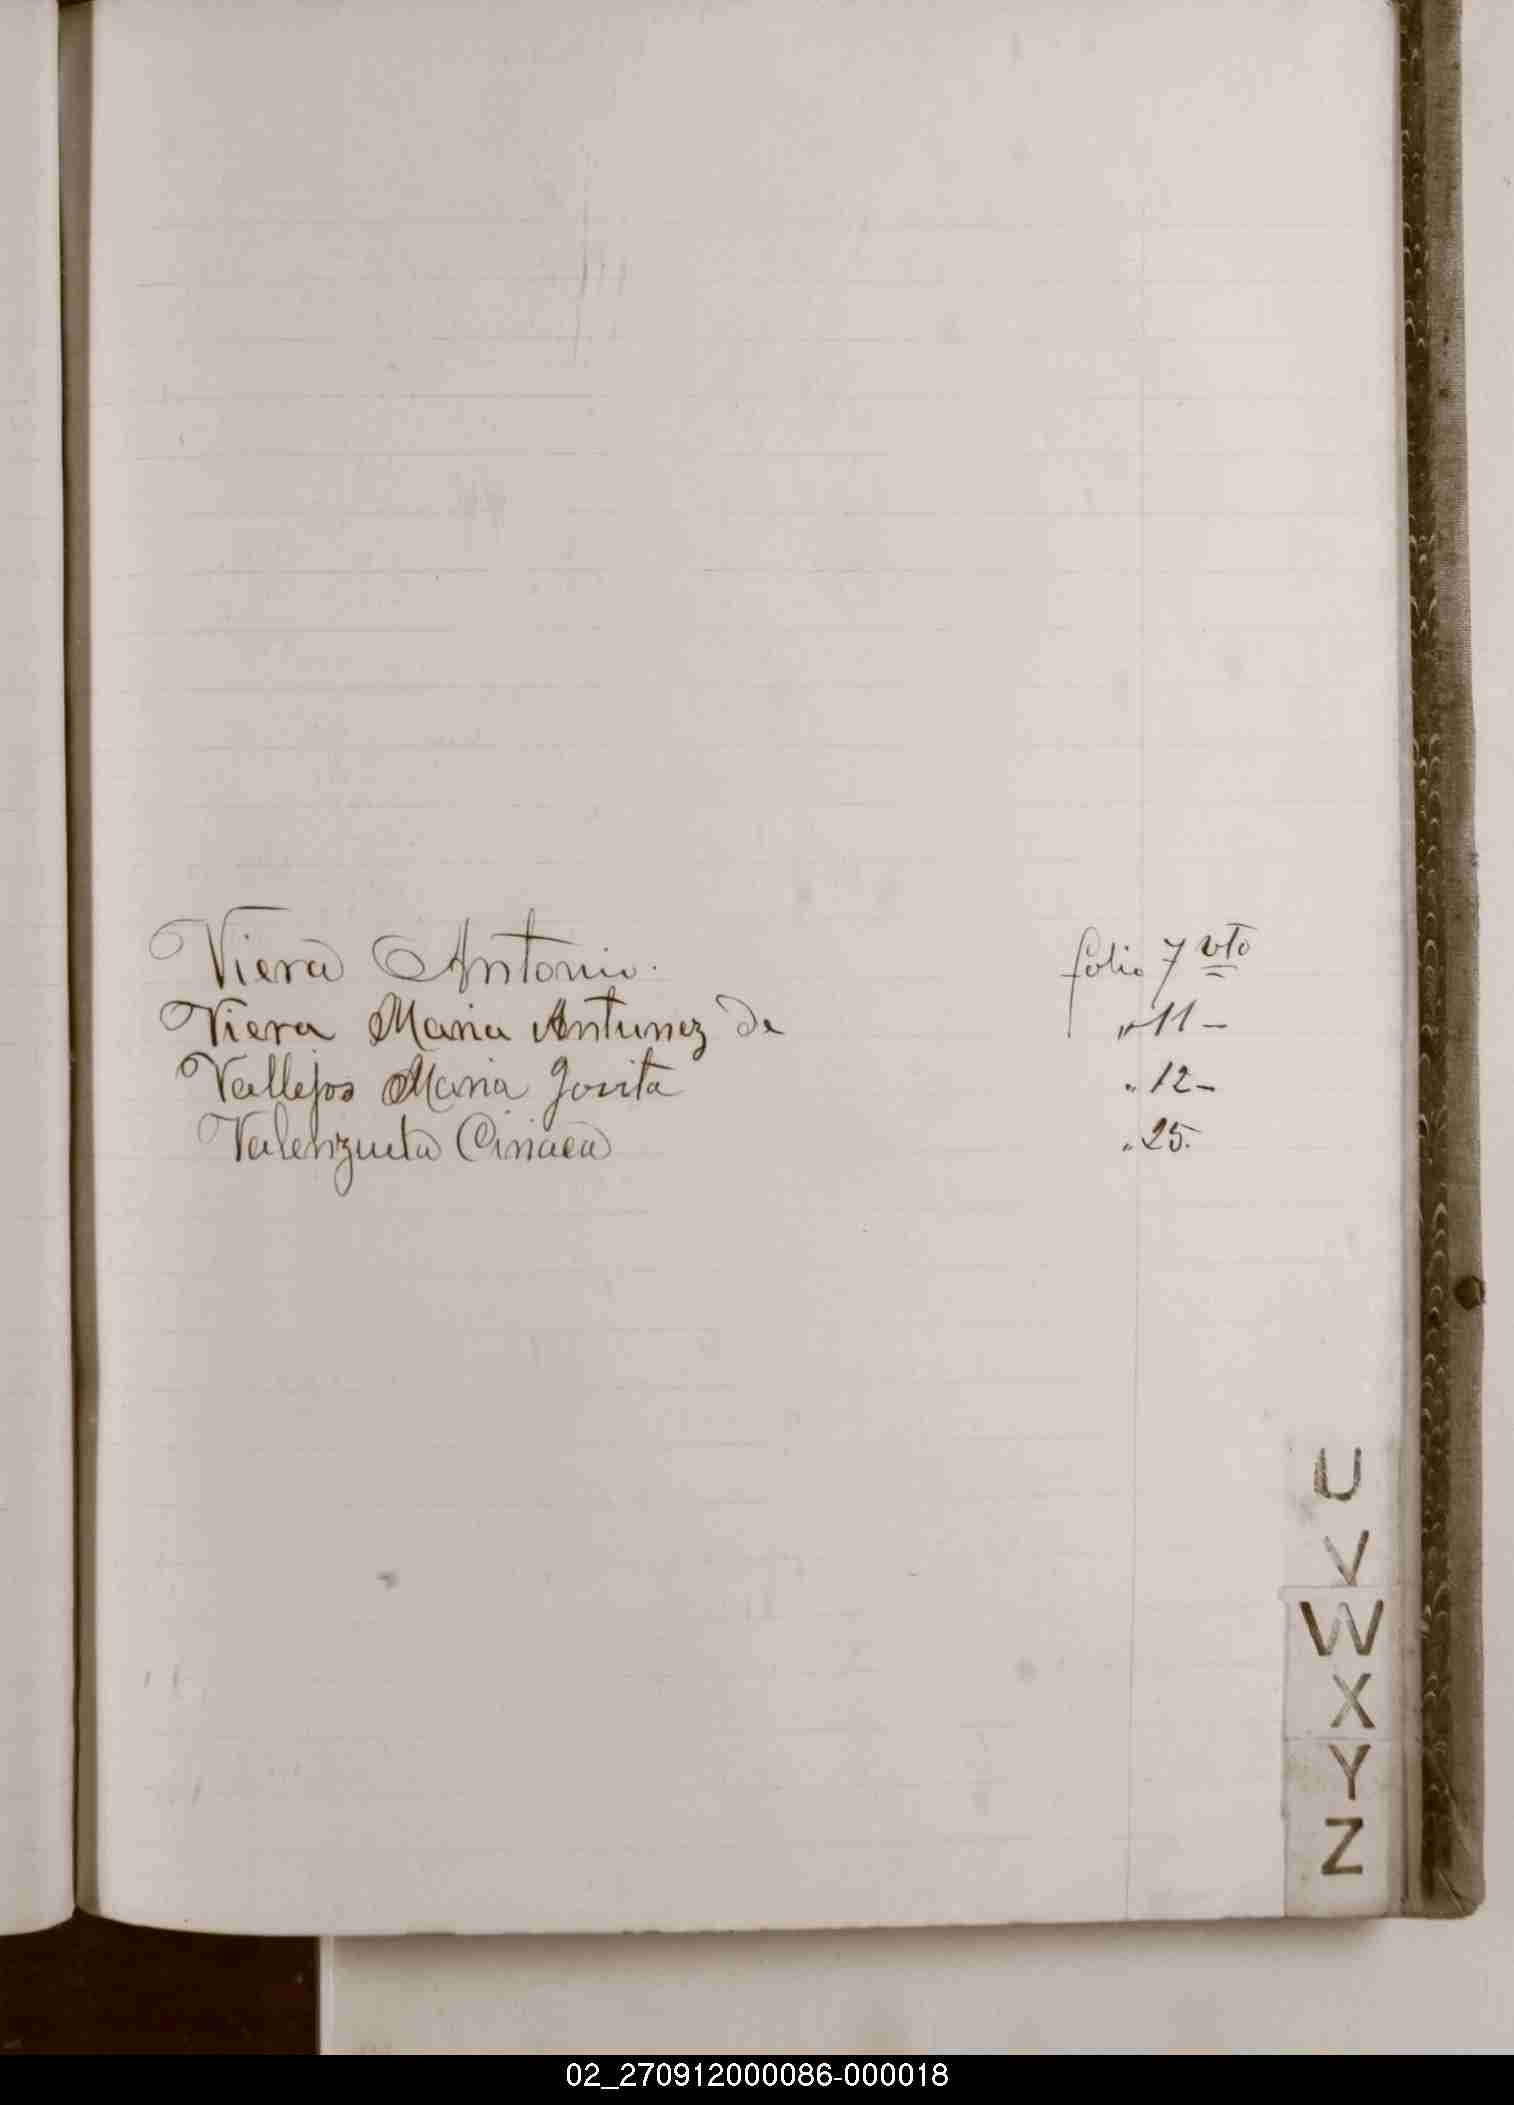 Viera Antonio. folio 7 vto
Viera Maria Antunez de " 11 -
Vallejos Maria Jovita " 12 -
Valenzuela Ciriaca " 25.
U
V
W
X
Y
Z
02_270912000086-000018